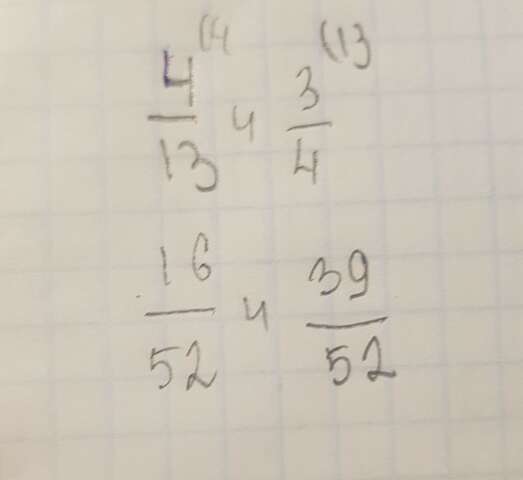 4/13 (4 и 3/4 (13
16/52 и 39/52